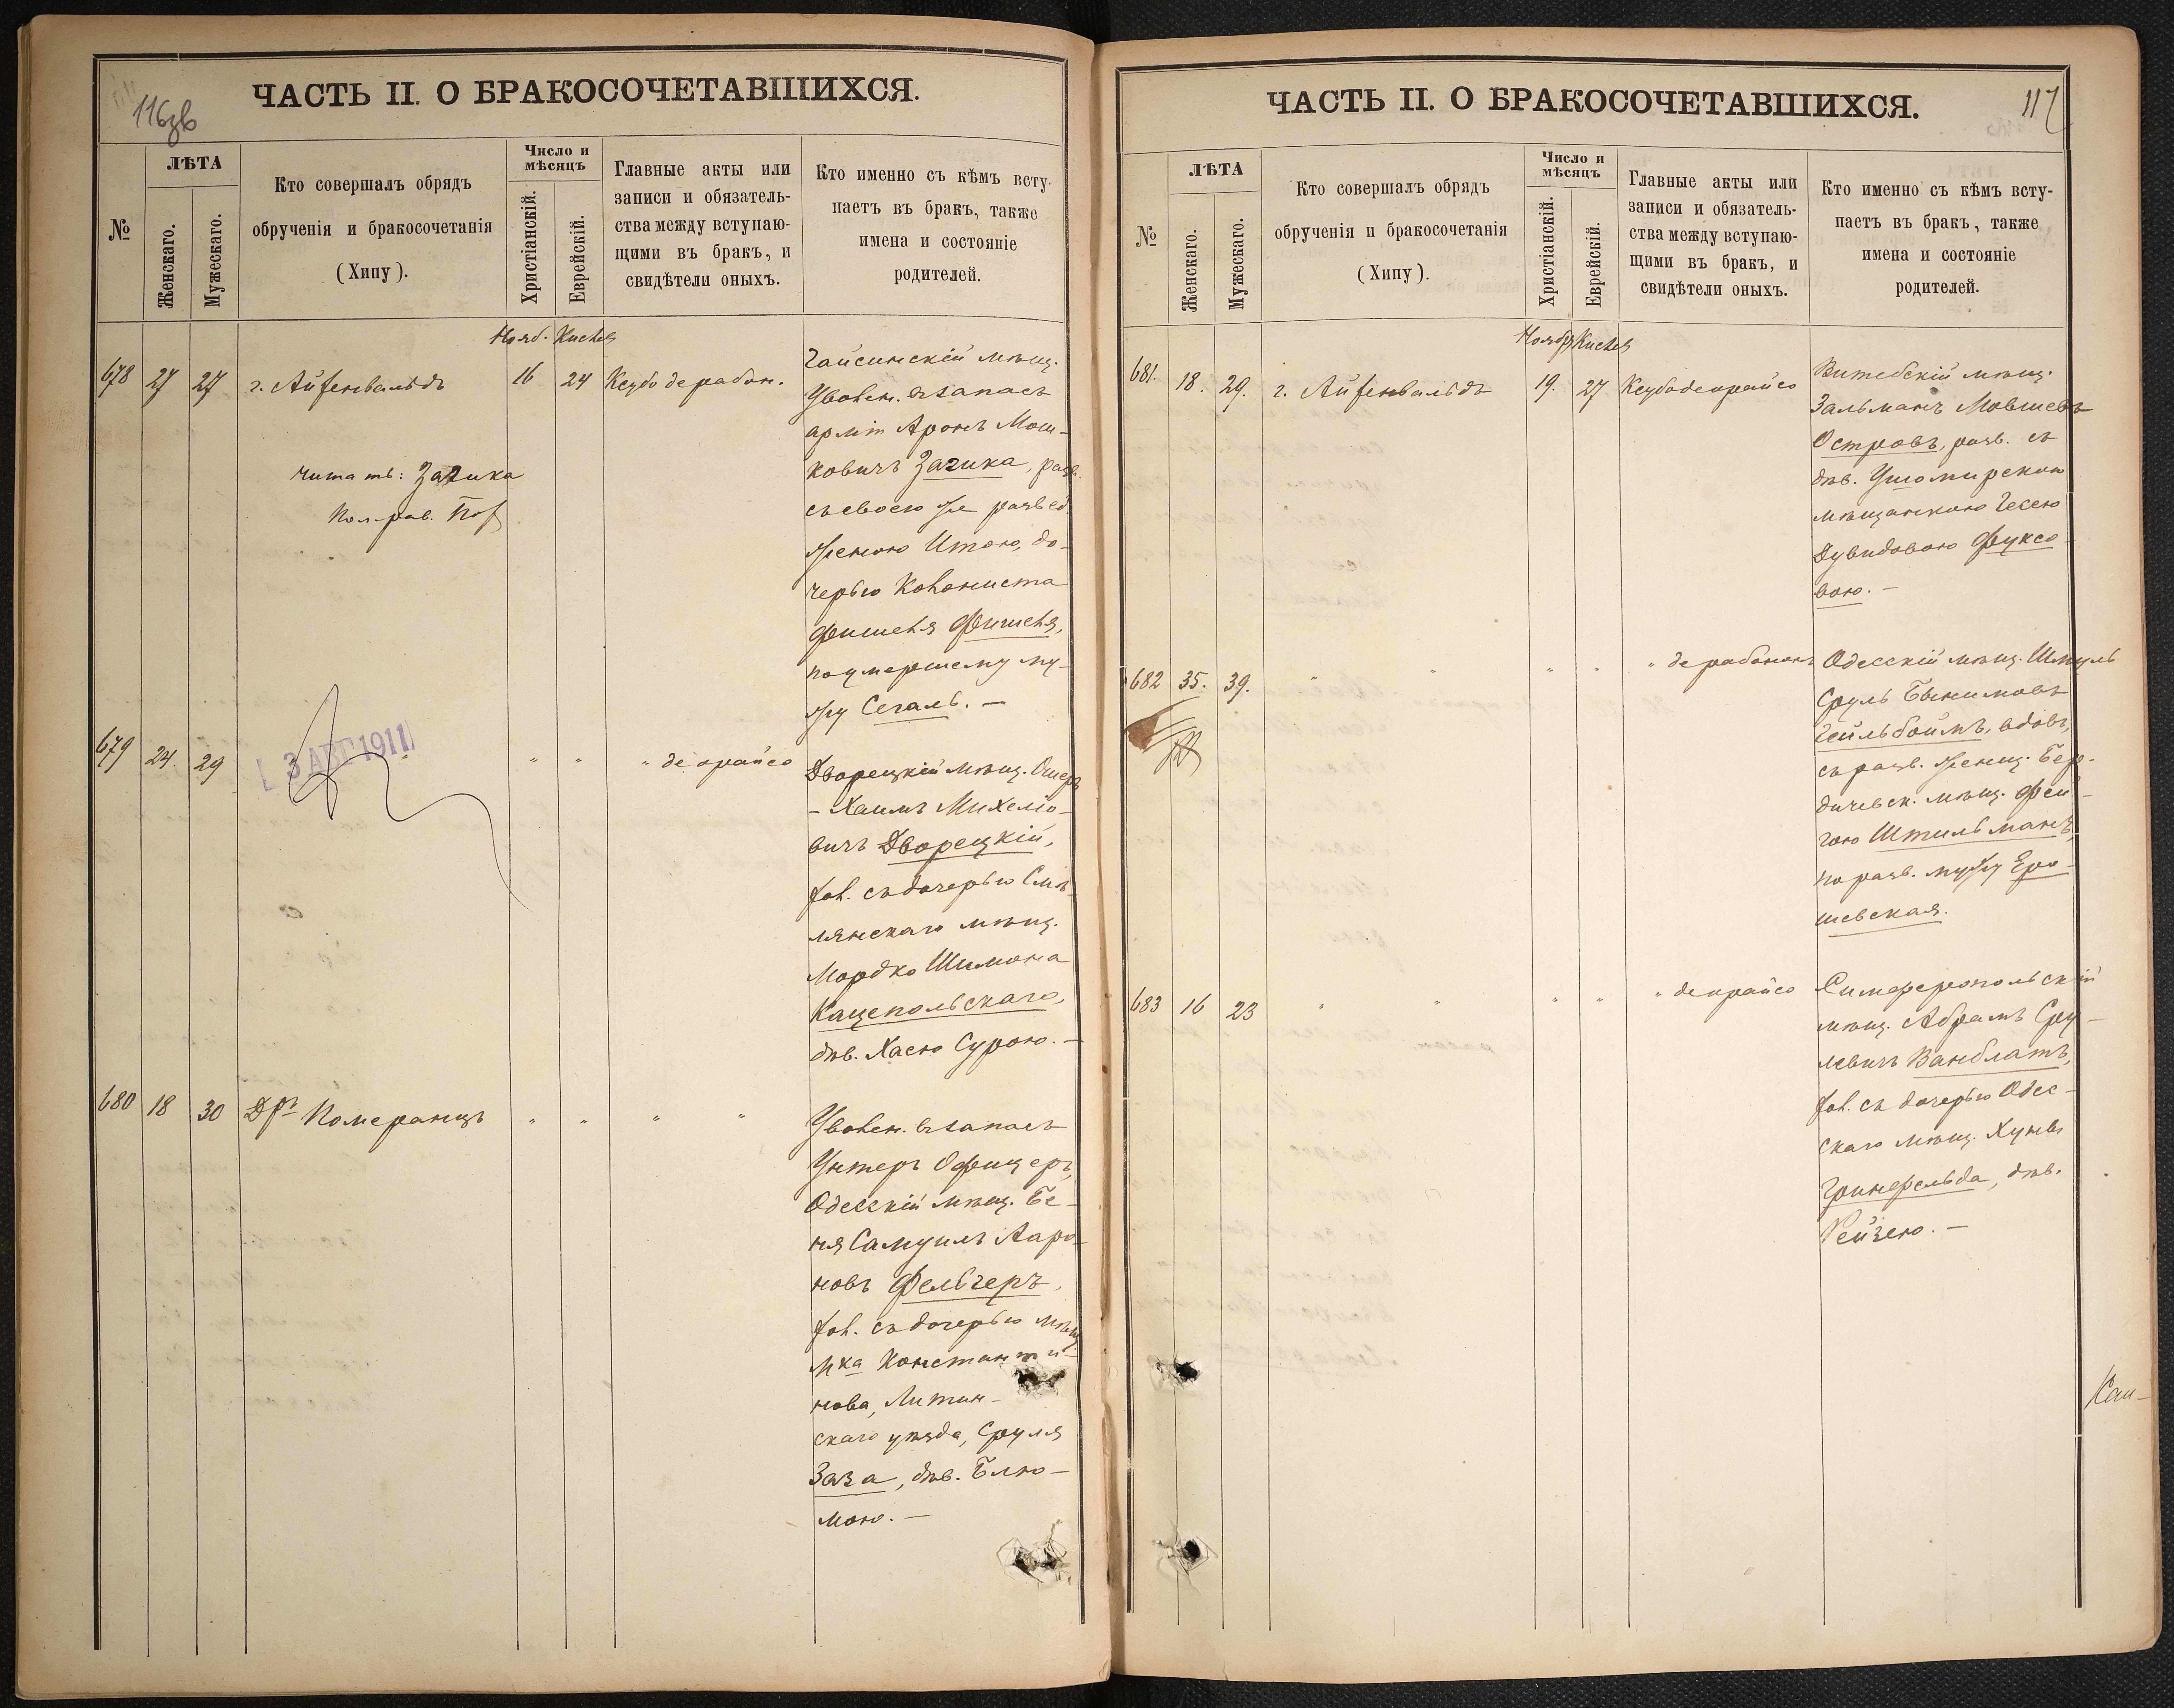 116об
ЧАСТЬ II. О БРАКОСОЧЕТАВШИХСЯ.
№
ЛѢТА
Женскаго.
Мужескаго.
Кто совершалъ обрядъ
обрученія и бракосочетанія
(Хипу).
Число и
мѣсяцъ
Христіанскій.
Еврейскій.
Главные акты или
записи и обязатель-
ства между вступаю-
щими въ бракъ, и
свидѣтели оныхъ.
Кто именно съ кѣмъ всту-
паетъ въ бракъ, также
имена и состояніе
родителей.
Нояб. Кислев
678 27 27 г. Айзенвальдъ 16 24 Ксубо дерабон.
Гайсинскій мѣщ.
Уволен. въ запасъ
арміи Аронъ Мош-
ковичъ Загика, разв.
съ своею же развед.
женою Итою, до-
черью колониста
Фишеля Фишеля,
по умершему му-
жу Сегаль. —
читать: Загика
679 24. 29 " " " деорайсо
3 АВГ 1911
Дворецкій мѣщ. Ошеръ
- Хаимъ Михеліо-
вичъ Дворецкій,
хол. съ дочерью Смѣ-
лянскаго мѣщ.
Мордко Шимона
Кацепольскаго,
дѣв. Хасею Сурою. —
680 18 30 Дръ Померанцъ " " " "
Уволен. въ запасъ
Унтеръ Офицеръ,
Одесскій мѣщ. Бе-
ня Самуилъ Ааро-
новъ Фельчеръ,
хол. съ дочерью мѣщ.
м-ка Константи-
нова, Литин-
скаго уѣзда, Сруля
Заза, дѣв. Блю-
мою. —
117
ЧАСТЬ II. О БРАКОСОЧЕТАВШИХСЯ.
№
ЛѢТА
Женскаго.
Мужескаго.
Кто совершалъ обрядъ
обрученія и бракосочетанія
(Хипу).
Число и
мѣсяцъ
Христіанскій.
Еврейскій.
Главные акты или
записи и обязатель-
ства между вступаю-
щими въ бракъ, и
свидѣтели оныхъ.
Кто именно съ кѣмъ всту-
паетъ въ бракъ, также
имена и состояніе
родителей.
Ноябр Кислев
681. 18. 29. г. Айзенвальдъ 19. 27 Ксубо деорайсо
Витебскій мѣщ.
Зальманъ Мовшевъ
Островъ, разв. съ
дѣв. Ушомирскою
мѣщанкою Гесею
Дувидовою Фуксо-
вою. —
682 35. 39. " " " " " дерабонон
Одесскій мѣщ. Шмуль
Сруль Бынимовъ
Гейльбоймъ, вдовъ,
съ разв. женщ. Бер-
дичевск. мѣщ. Фей-
гою Штильманъ,
по разв. мужу Еро-
шевская.
683 16 23 " " " " " деорайсо
Симферопольскій
мѣщ. Абрамъ Сру-
левичъ Ванблатъ,
хол. съ дочерью Одес-
скаго мѣщ. Хуны
Гринфельда, дѣв.
Рейзею. —